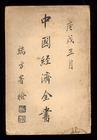 庚戌三月
中國經濟全書
端方署檢